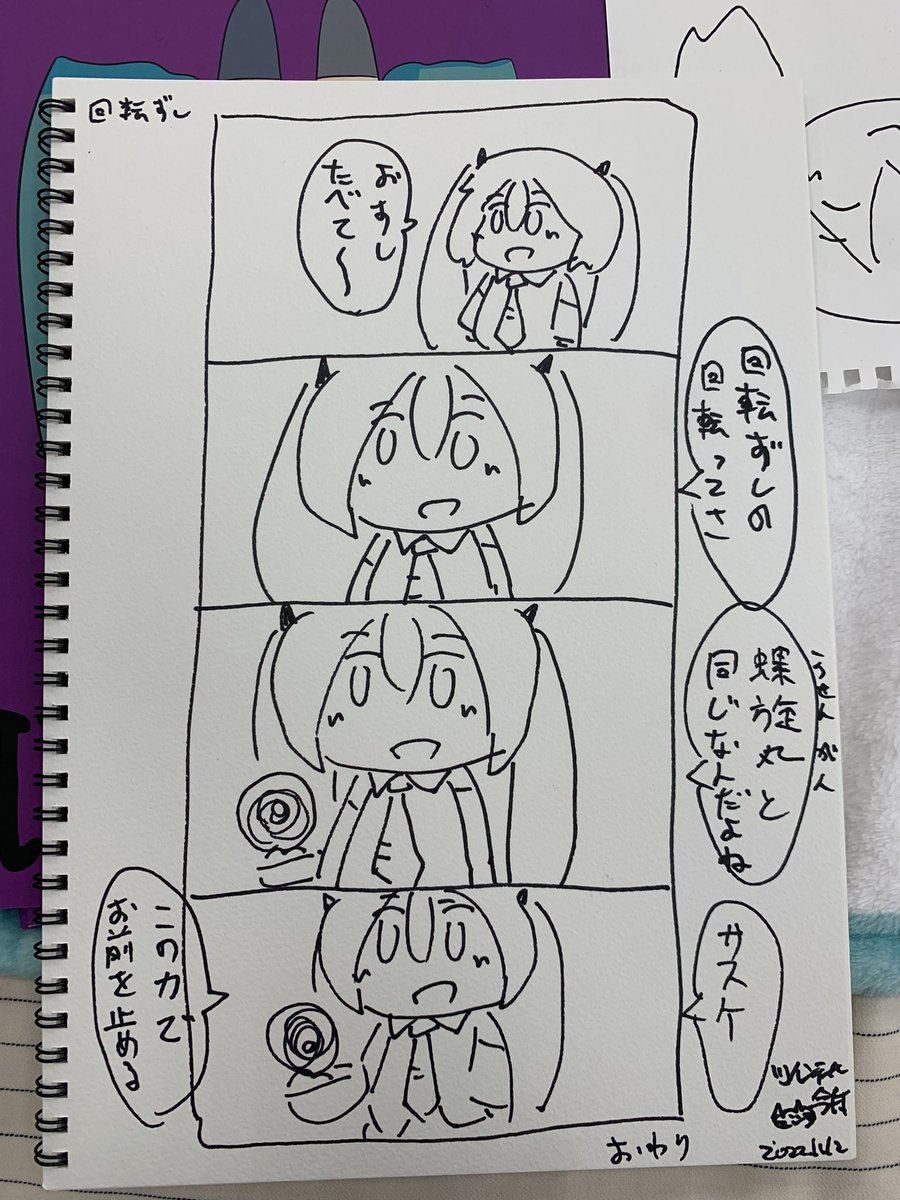 回転ずし
おすし
たべて〜
回転ずしの
回転ってさ
螺旋丸と
らせんがん
同じなんだよね
サスケ
この力で
お前を止める
おわり